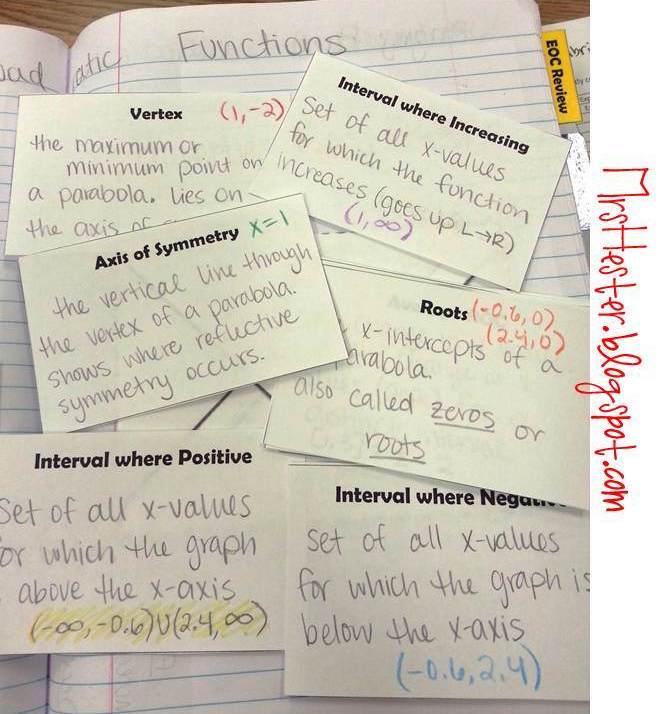 Functions
uad
atic
EOC Review
Vertex (1,-2)
the maximum or
minimum point on
a parabola. lies on
the axis of
Interval where Increasing
Set of all x-values
for which the function
increases (goes up L→R)
(1,∞)
Axis of Symmetry x=1
the vertical line through
the vertex of a parabola.
shows where reflective
symmetry occurs.
Roots (-0.6, 0)
(2.4, 0)
x-intercepts of a
parabola.
also called zeros or
roots
Interval where Positive
Set of all x-values
for which the graph
above the x-axis
(-∞, -0.6)∪(2.4, ∞)
Interval where Negative
set of all x-values
for which the graph is
below the x-axis
(-0.6, 2.4)
MrsHester.blogspot.com